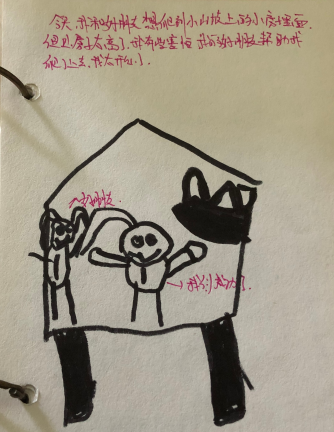 今天,我和好朋友想爬到小山坡上的小房里面,
但是房子太高了,我有些害怕,我的好朋友帮助我
爬了上去,我太开心了.
好朋友
我们成功了